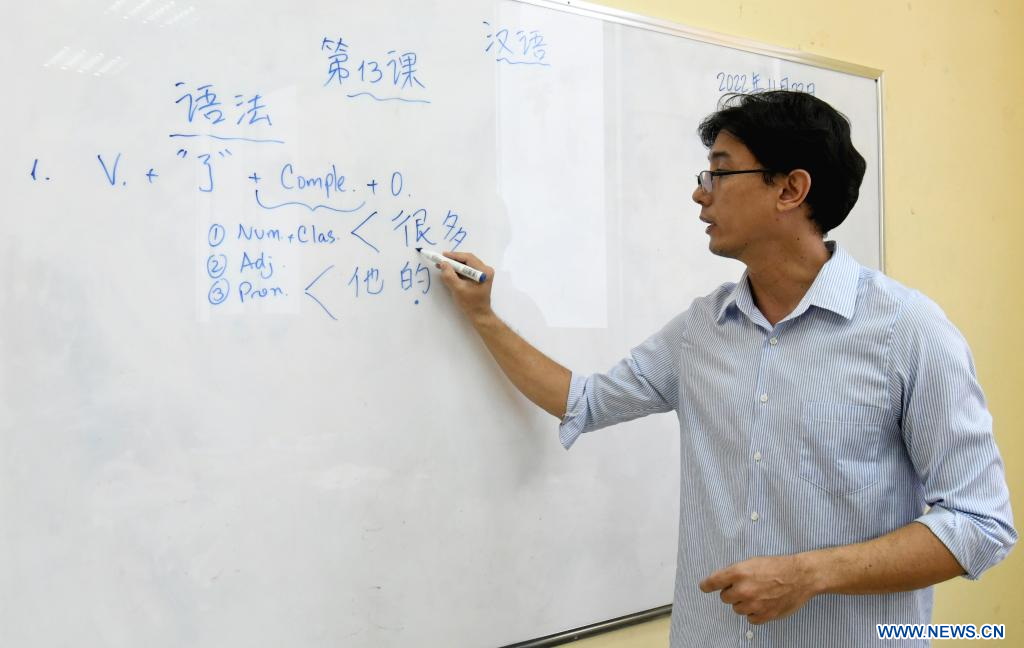 汉语
第13课
2022年11月22日
语法
1. V. + "了" + Comple. + O.
① Num.+Clas. < 很多
② Adj.
③ Pron. < 他的
WWW.NEWS.CN